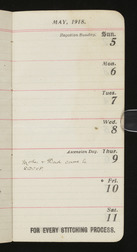 MAY, 1918.
Rogation Sunday. Sun.
5
Mon.
6
Tues.
7
Wed.
8
Ascension Day. Thur.
9
Fri.
10
Sat.
11
FOR EVERY STITCHING PROCESS.